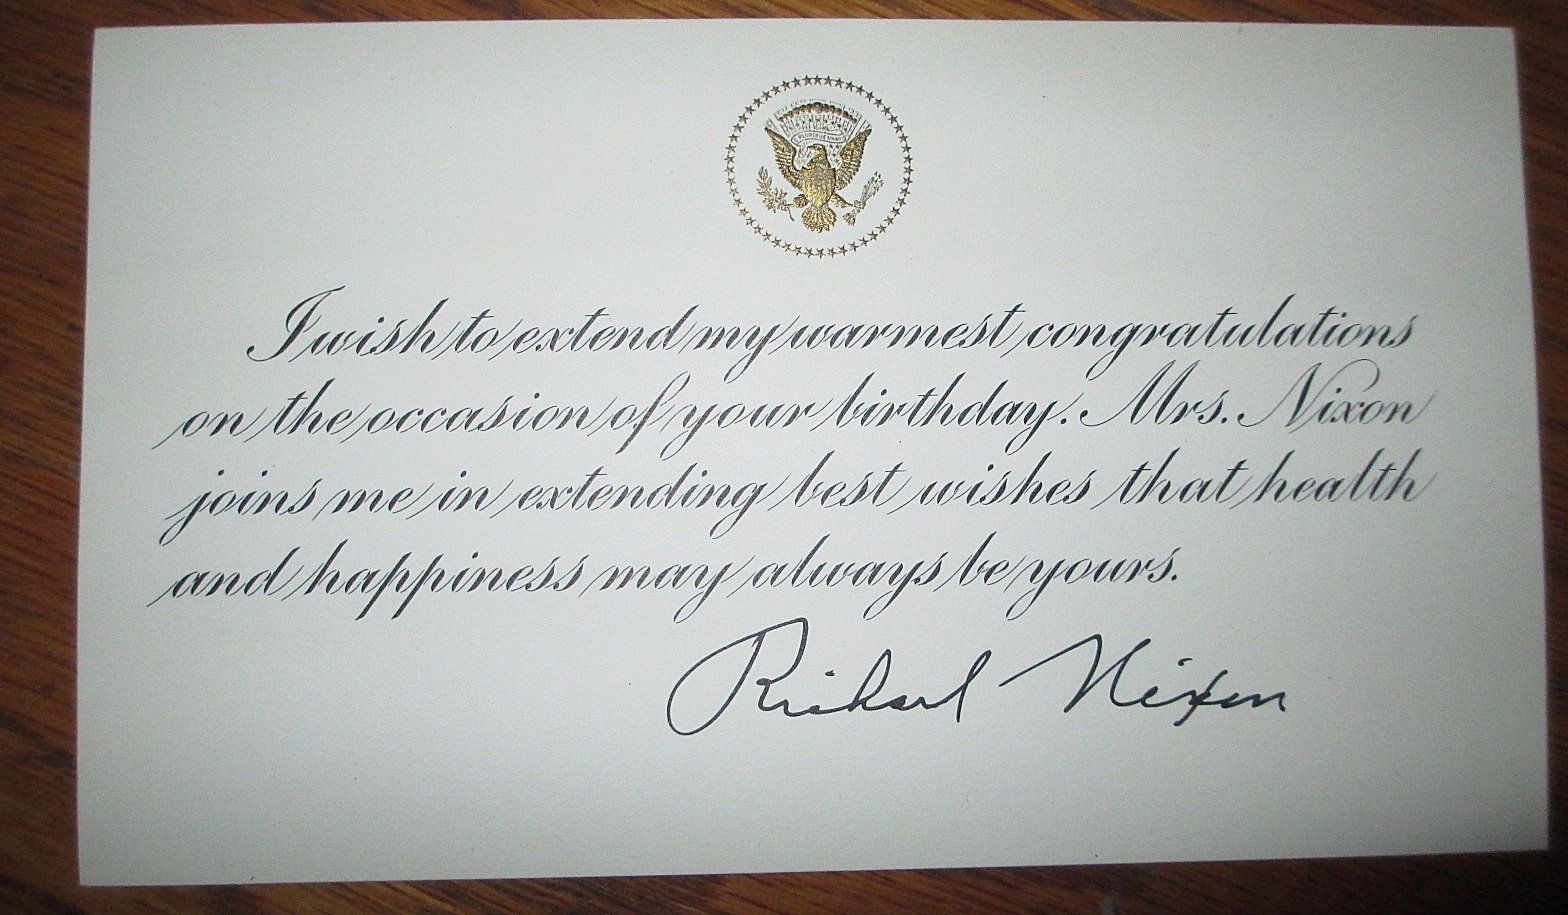 I wish to extend my warmest congratulations
on the occasion of your birthday. Mrs. Nixon
joins me in extending best wishes that health
and happiness may always be yours.
Richard Nixon